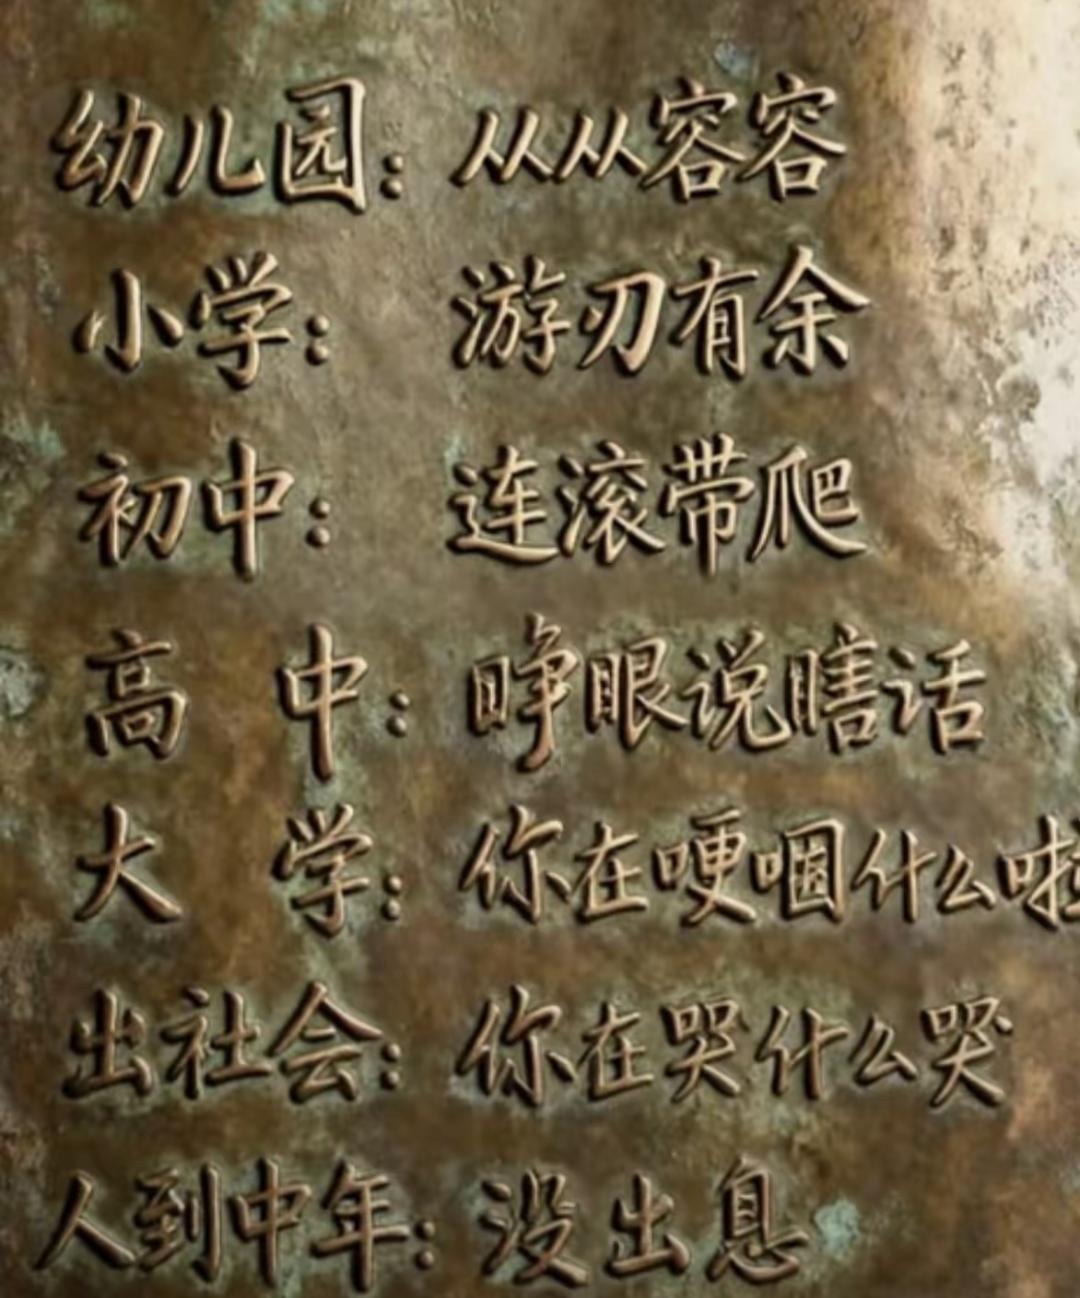 幼儿园：从从容容
小学：游刃有余
初中：连滚带爬
高中：睁眼说瞎话
大学：你在哽咽什么啦
出社会：你在哭什么哭
人到中年：没出息